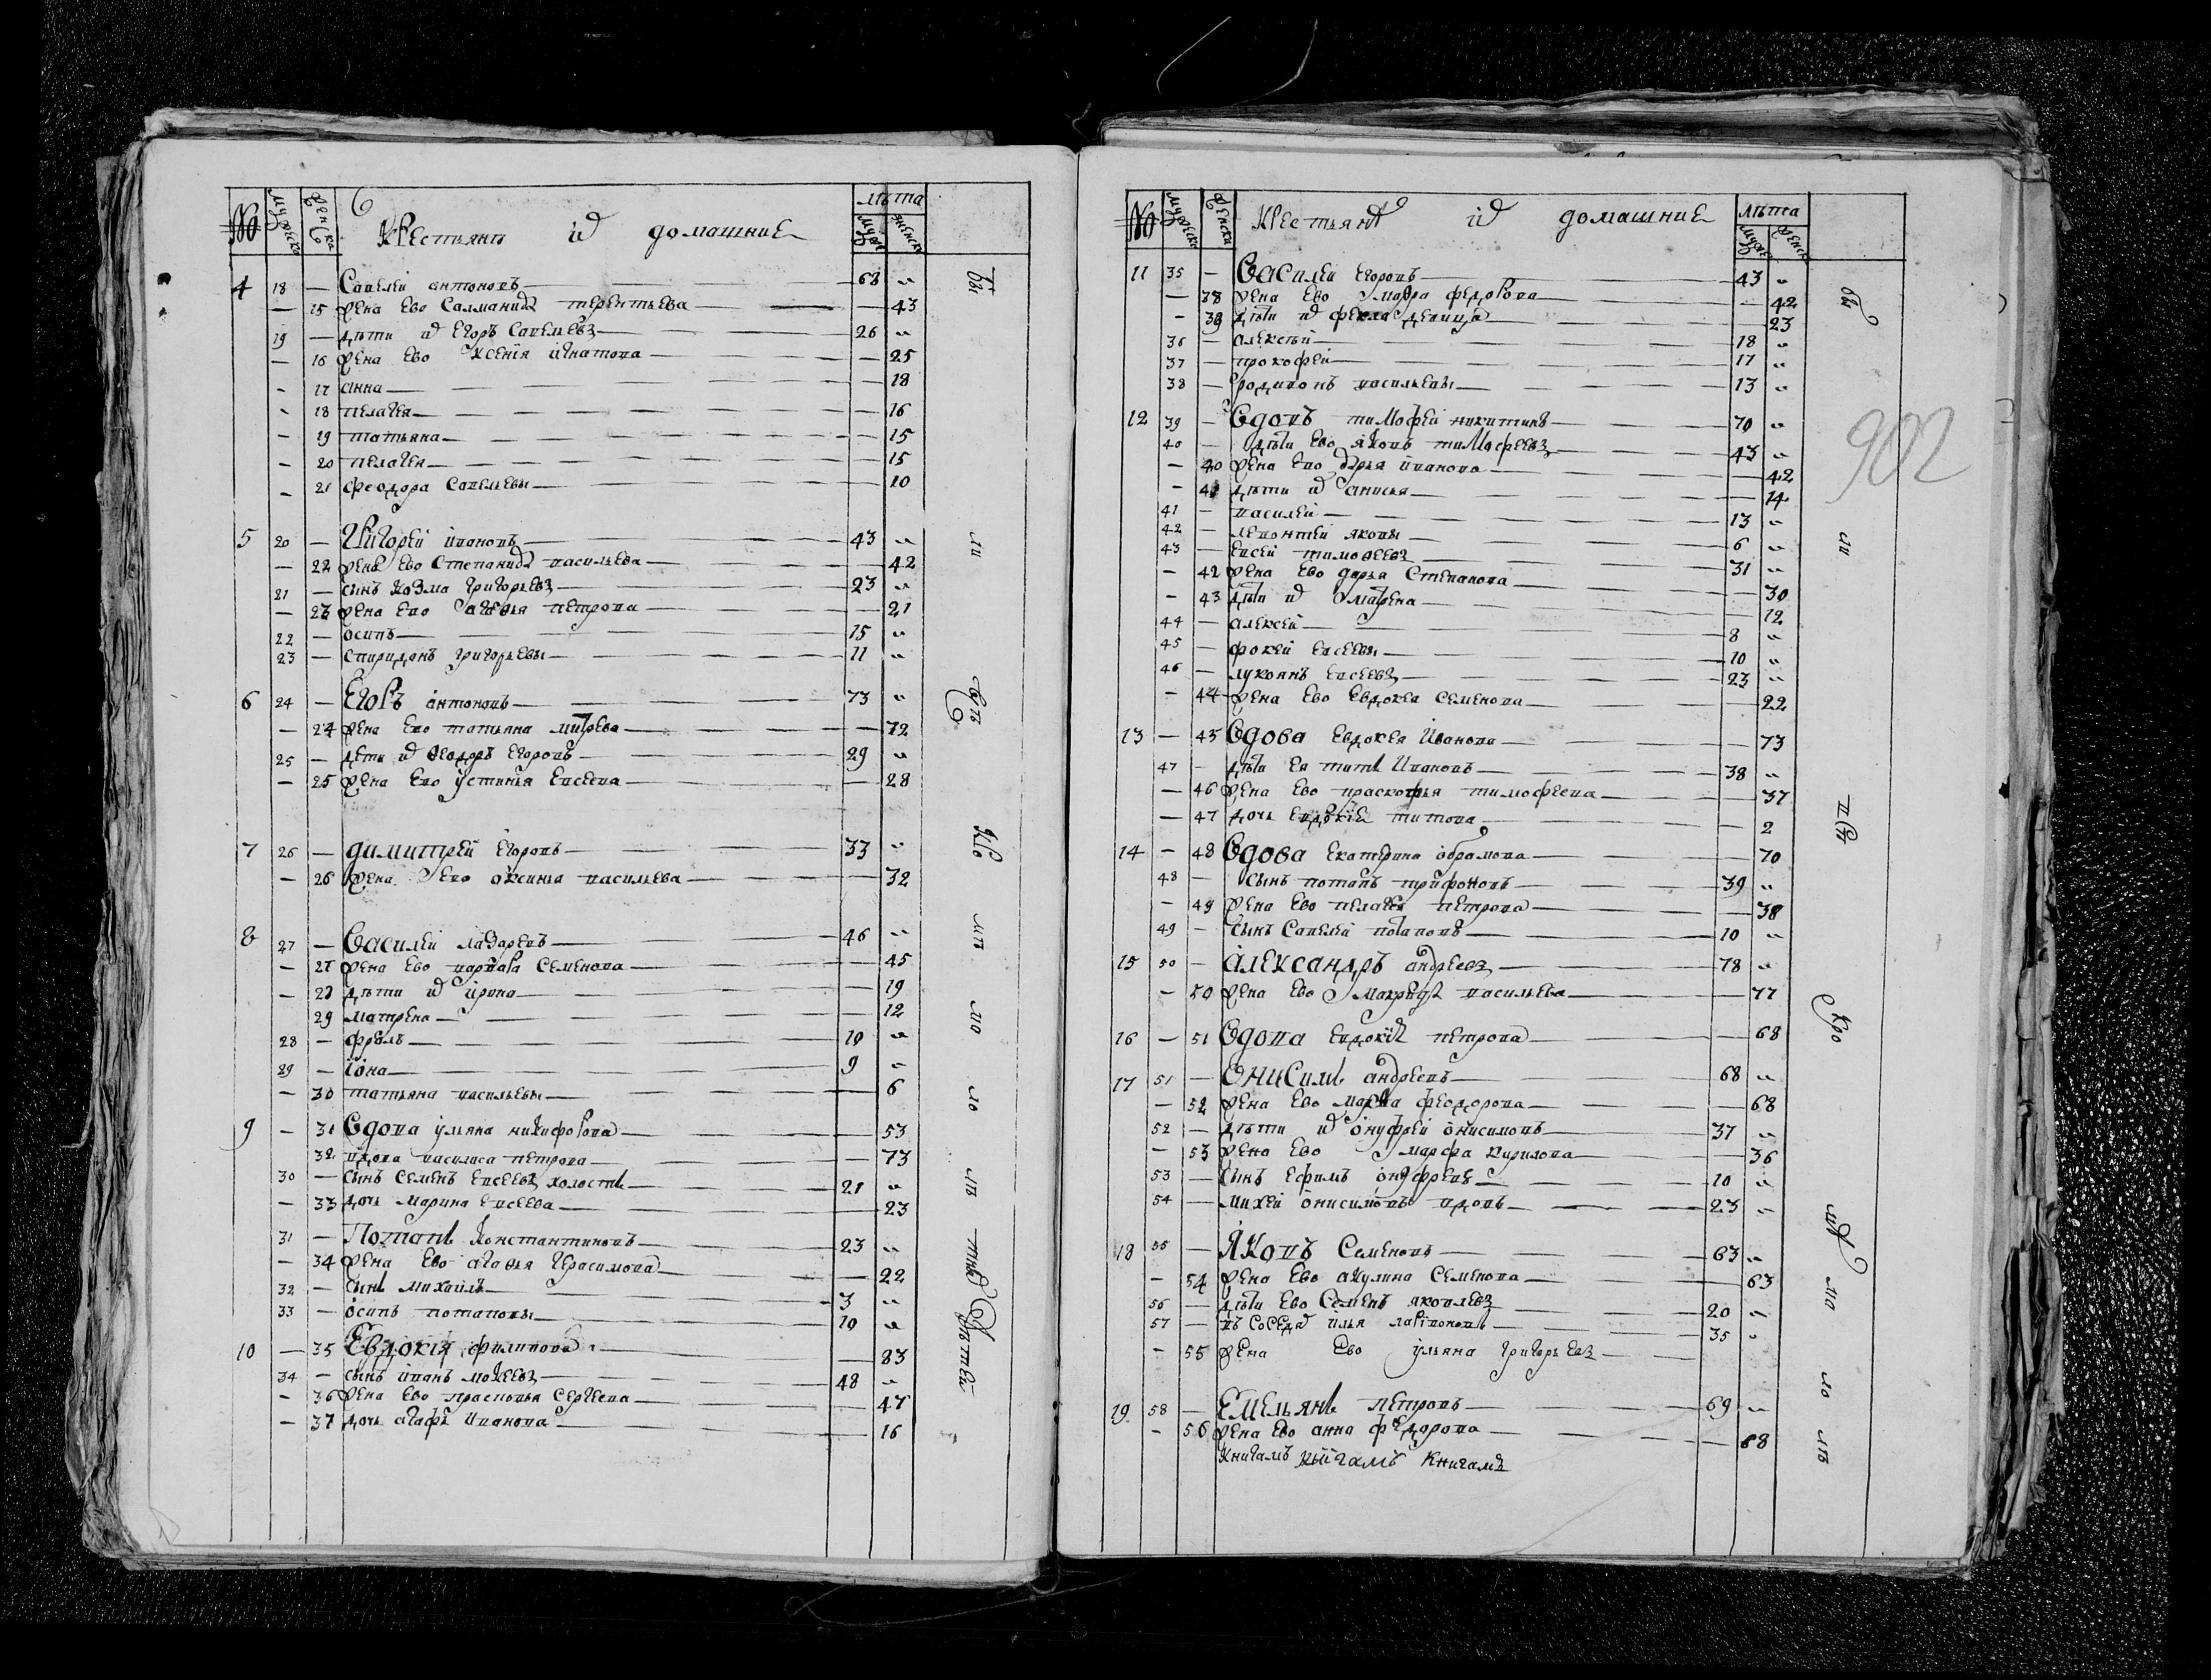 № мужеска женска Крестьяне их домашние лѣта
муже женски
4 18 — Савелей антоновъ 68 "
— 15 жена Ево Саламанида терентьева — 43
19 — дѣти их Егоръ Савельевъ 26 "
— 16 жена Ево Ксенїя игнатова — 25
- 17 анна — 18
- 18 пелагея — 16
- 19 татьяна — 15
- 20 пелагея — 15
- 21 феодора Савельевы — 10
5 20 — Григорей ивановъ 43 "
— 22 жена Ево Степанида васильева — 42
21 — сынъ Козма Григорьевъ 23 "
— 23 жена Ево агафья петрова — 21
22 — осипъ 15 "
23 — спиридонъ григорьевы 11 "
6 24 — Егоръ антоновъ 73 "
— 24 жена Ево татьяна митрева — 72
25 — дети их Ѳеодоръ Егоровъ 29 "
— 25 жена Ево устинья Евсеева — 28
7 26 — димитрей Егоровъ 33 "
— 26 жена Ево оксинья васильева — 32
8 27 — Василей лазаревъ 46 "
— 27 жена Ево варвара Семенова — 45
— 28 дѣти их ирина — 19
29 матрена — 12
28 — фролъ 10 "
29 — іона 9 "
— 30 татьяна васильевы — 6
9 — 31 Вдова ульяна никифорова — 53
32 вдова василиса петрова — 73
30 — сынъ Семенъ Евсеевъ холостъ 21 "
— 33 дочь марина Евсеева — 23
31 — Потапъ Константиновъ 23 "
— 34 жена Ево агафья Герасимова — 22
32 — сынъ михайлъ 3 "
33 — осипъ потаповы 10 "
10 — 35 Евдокія филипова — 83
34 — сынъ иванъ мокеевъ 48 "
- 36 жена Ево прасковья Сергеева — 47
— 37 дочь агафья иванова — 16
бы
ли
Ко
мъ
мо
ло
лѣ
№ мужески женски Крестьяне их домашние лѣта
муже женск
11 35 — Василей Егоровъ 43 "
— 38 жена Ево мавра федорова — 42
- 39 дѣти их фекла девица — 23
36 — алексѣй 18 "
37 — прокофей 17 "
38 — родивонъ васильевы 13 "
12 39 — Вдовъ тимофей никитинъ 70 "
40 — дѣти Ево яковъ тимофеевъ 43 "
— 40 жена Ево дарья иванова — 42
- 41 дѣти их анисья — 14
41 — василей 13 "
42 — левонтей яковы 6 "
43 — Евсей тимофеевъ 31 "
- 42 жена Ево дарья Степанова — 30
- 43 дѣти их матрена — 12
44 — алексей 8 "
45 — фокей Евсеевы 10 "
46 — лукоянъ Евсеевъ 23 "
- 44 жена Ево Евдокея семенова — 22
13 — 45 Вдова Евдокея Иванова — 73
47 — дѣти Ея титъ Ивановъ 38 "
— 46 жена Ево прасковья тимофеева — 37
— 47 дочь Евдокїя титова — 2
14 — 48 Вдова Екатерина абрамова — 70
48 — сынъ потапъ трифоновъ 39 "
— 49 жена Ево пелагея петрова — 38
49 — сынъ Савелей потаповъ 10 "
15 50 — Александръ андреевъ 78 "
— 50 жена Ево макрида васильева — 77
16 — 51 Вдова Евдокїя петрова — 68
17 51 — Онисимъ андреевъ 68 "
— 52 жена Ево марѳа феодорова — 68
52 — дѣти их онуфрей онисимовъ 37 "
- 53 жена Ево марфа кирилова — 36
53 — сынъ Ефимъ онуфревъ 10 "
54 — михей онисимовъ вдовъ 23 "
18 55 — Яковъ Семеновъ 63 "
— 54 жена Ево акулина Семенова — 63
56 — дѣти Ево Семенъ яковлевъ 20 "
57 — въ соседа илья ларивоновъ 35 "
- 55 жена Ево ульяна григорьева
19 58 — Емельянъ петровъ 69 "
- 56 жена Ево анна федорова — 68
Книгамъ книгамъ Книгамъ
бы
ли
мо
ло
902